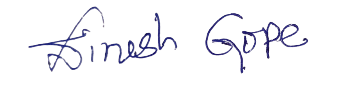 Dinesh Gope